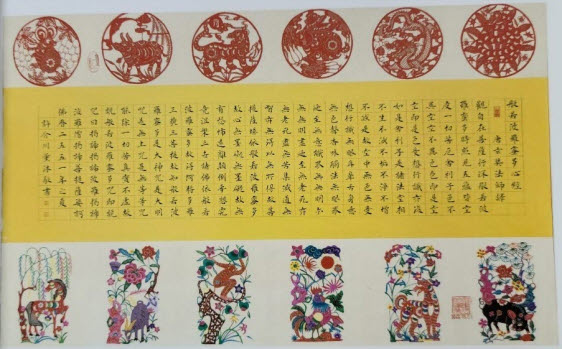 般若波羅蜜多心經
唐玄奘法師譯
觀自在菩薩行深般若波
羅蜜多時照見五蘊皆空
度一切苦厄舍利子色不
異空空不異色色即是空
空即是色受想行識亦復
如是舍利子是諸法空相
不生不滅不垢不淨不增
不減是故空中無色無受
想行識無眼耳鼻舌身意
無色聲香味觸法無眼界
乃至無意識界無無明亦
無無明盡乃至無老死亦
無老死盡無苦集滅道無
智亦無得以無所得故菩
提薩埵依般若波羅蜜多
故心無罣礙無罣礙故無
有恐怖遠離顛倒夢想究
竟涅槃三世諸佛依般若
波羅蜜多故得阿耨多羅
三藐三菩提故知般若波
羅蜜多是大神咒是大明
咒是無上咒是無等等咒
能除一切苦真實不虛故
說般若波羅蜜多咒即說
咒曰揭諦揭諦波羅揭諦
波羅僧揭諦菩提薩婆訶
佛曆二五五一年之夏
敬書